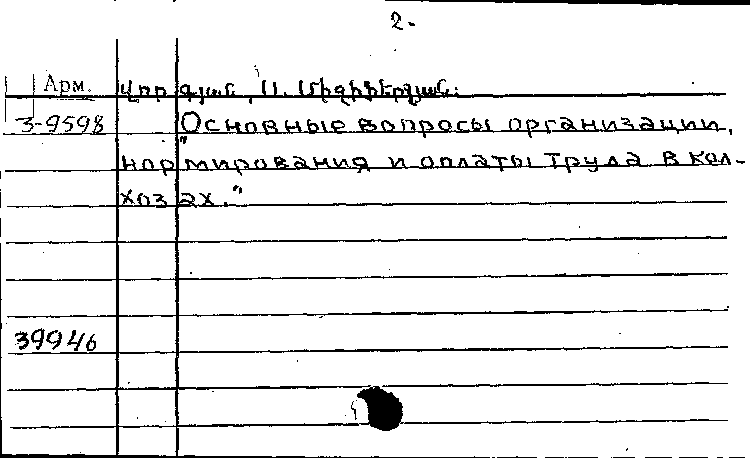 2.
Арм.
3-9598
"Основные вопросы организации,
нормирования и оплаты труда в кол-
хозах."
39946